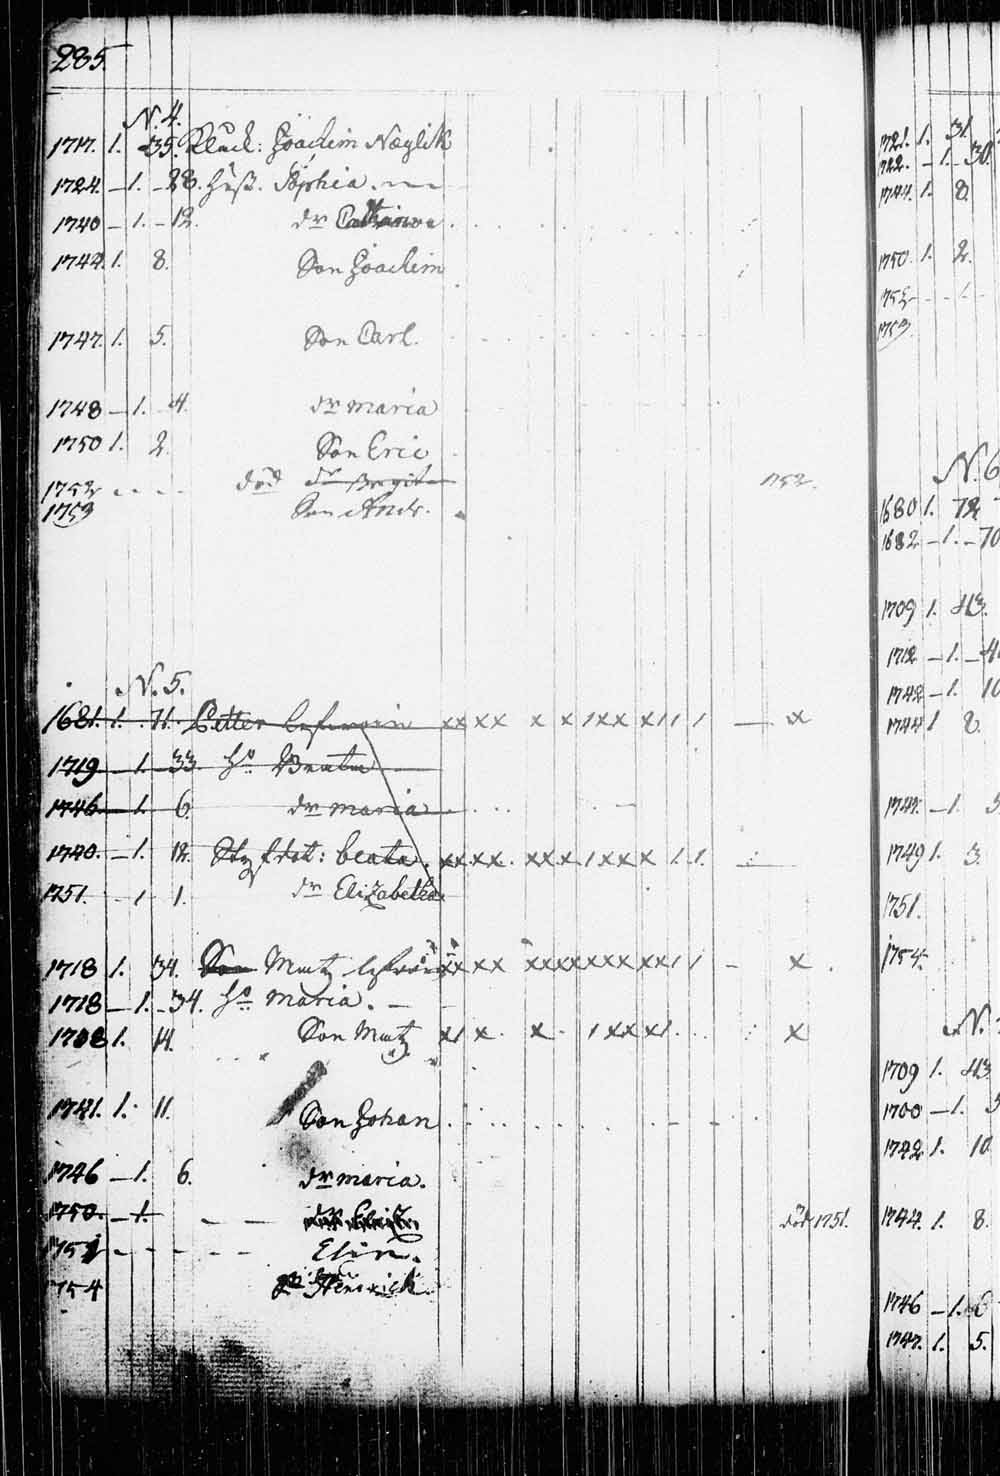 285.
N. 4.
1717. 1. 35. Joachim Næglik
1724. – 1. – 28. Hust. Sophia.
1740 – 1. – 12. dr
1744. 1. 8. Son Joachim
1747. 1. 5. Son Carl.
1748 – 1. 4. dr maria
1750 1. 2. Son Eric
1752 död dr Birgit 1752.
1753 Son Andr.
N. 5.
1681. 1. 71. Petter x x x x x x 1 x x x 1 1 1 — x
1719 – 1. 33. Ho. Beata
1746 – 1. 6 dr maria
1740. – 1. 12. beata. x x x x. x x x 1 x x x 1. 1.
1751. – 1 1. dr Elizabetha
1718 1. 34. Son Matz x x x x x x x x x x x x x 1 1 – x.
1718 – 1. – 34. Ho maria.
1738 1. 14. Son Matz x 1 x x 1 x x x 1 x
1741. 1. 11. Son Johan
1746 – 1. 6. dr maria.
1750. – 1. död 1751.
1752 Elin.
1754 Henrick
1721. 1. 31.
1722. – 1. – 30.
1744. 1. 8.
1750. 1. 2.
1752 – – 1.
1753.
N. 6
1680 1. 72
1682 – 1. – 70
1709 1. 43.
1712 – 1. – 4
1742 – 1. 10
1744 1 8.
1747. – 1. 5
1749 1. 3.
1751.
1754.
N.
1709 1. 43
1700 – 1. 5
1742 1. 10
1744. 1. 8.
1746 – 1. 6
1747. 1. 5.